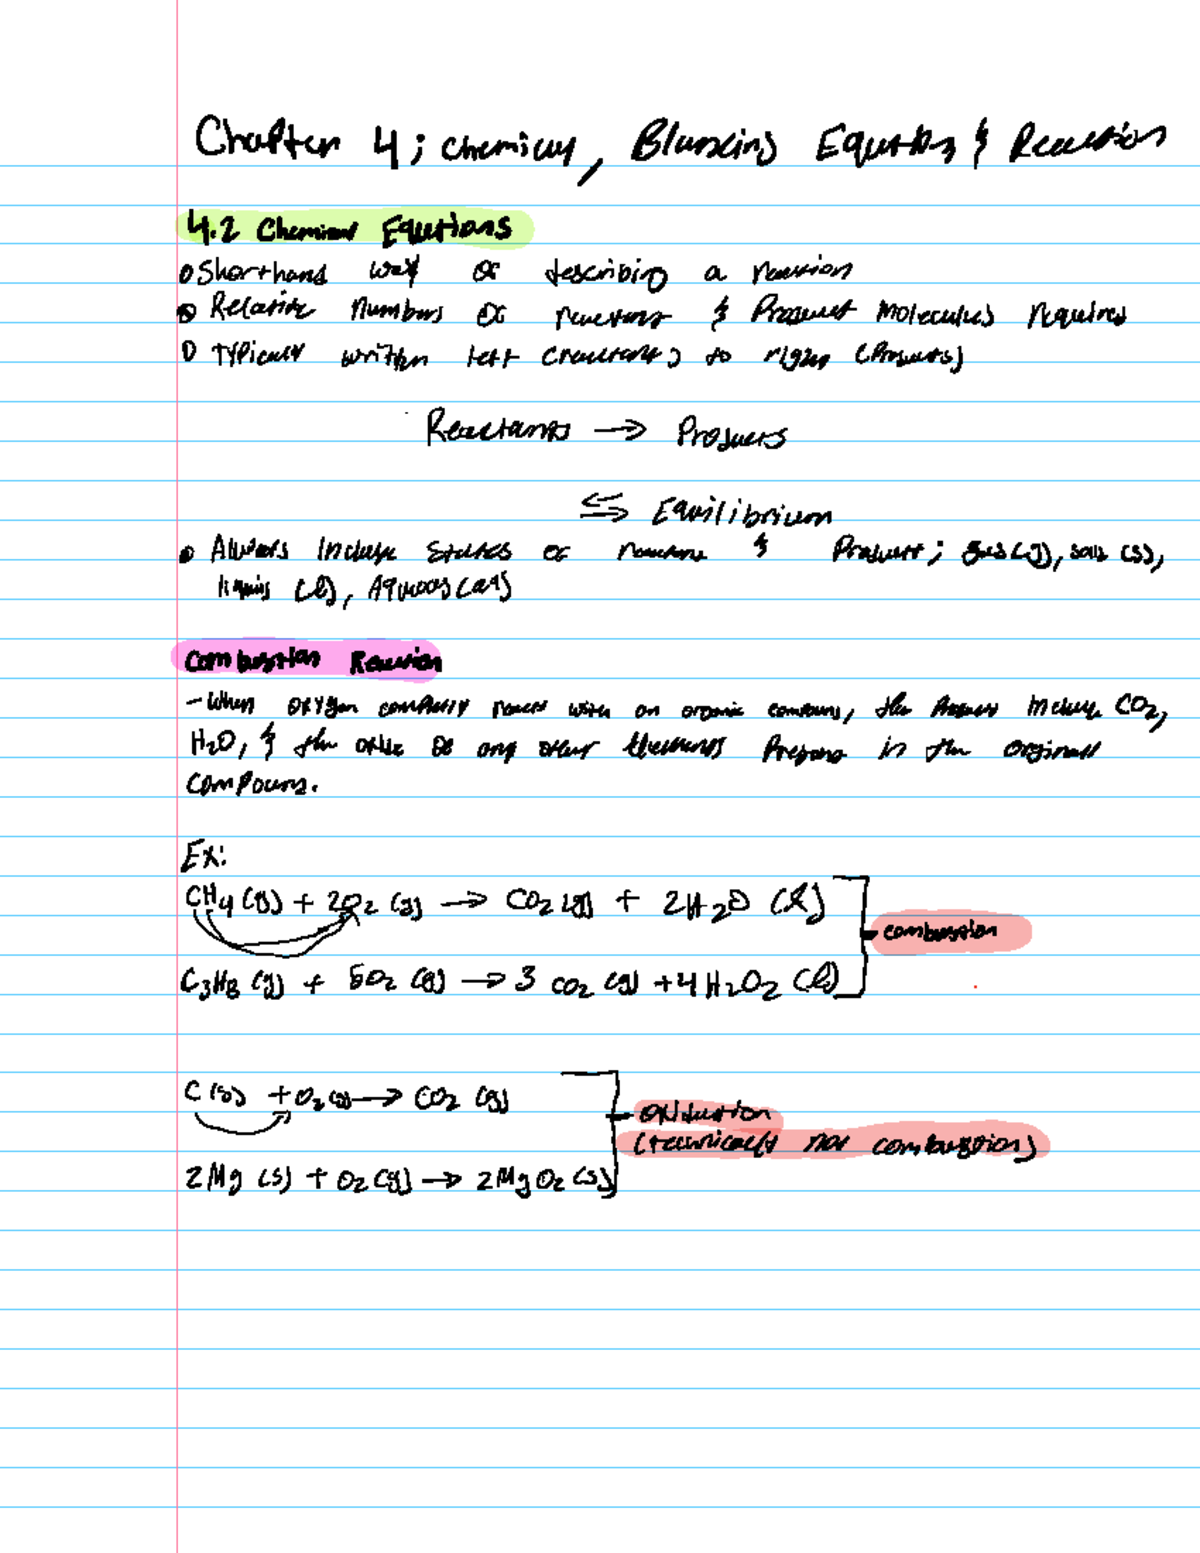 Chapter 4; chemical, Balancing Equations & Reaction
4.2 Chemical Equations
Shorthand way of describing a reaction
Relative numbers of reactant & Product molecules required
Typically written left (reactants) to right (Products)
Reactants → Products
⇆ Equilibrium
Always include states of reactant & Product; gas (g), solid (s),
liquid (l), Aqueous (aq)
Combustion Reaction
- When oxygen completely reacts with an organic compound, the products include CO2,
H2O, & the oxide of any other elements present in the original
compound.
Ex:
CH4 (g) + 2O2 (g) → CO2 (g) + 2H2O (l)
combustion
C3H8 (g) + 5O2 (g) → 3 CO2 (g) + 4H2O2 (l)
C (s) + O2 (g) → CO2 (g)
oxidation
(technically not combustion)
2Mg (s) + O2 (g) → 2MgO2 (s)